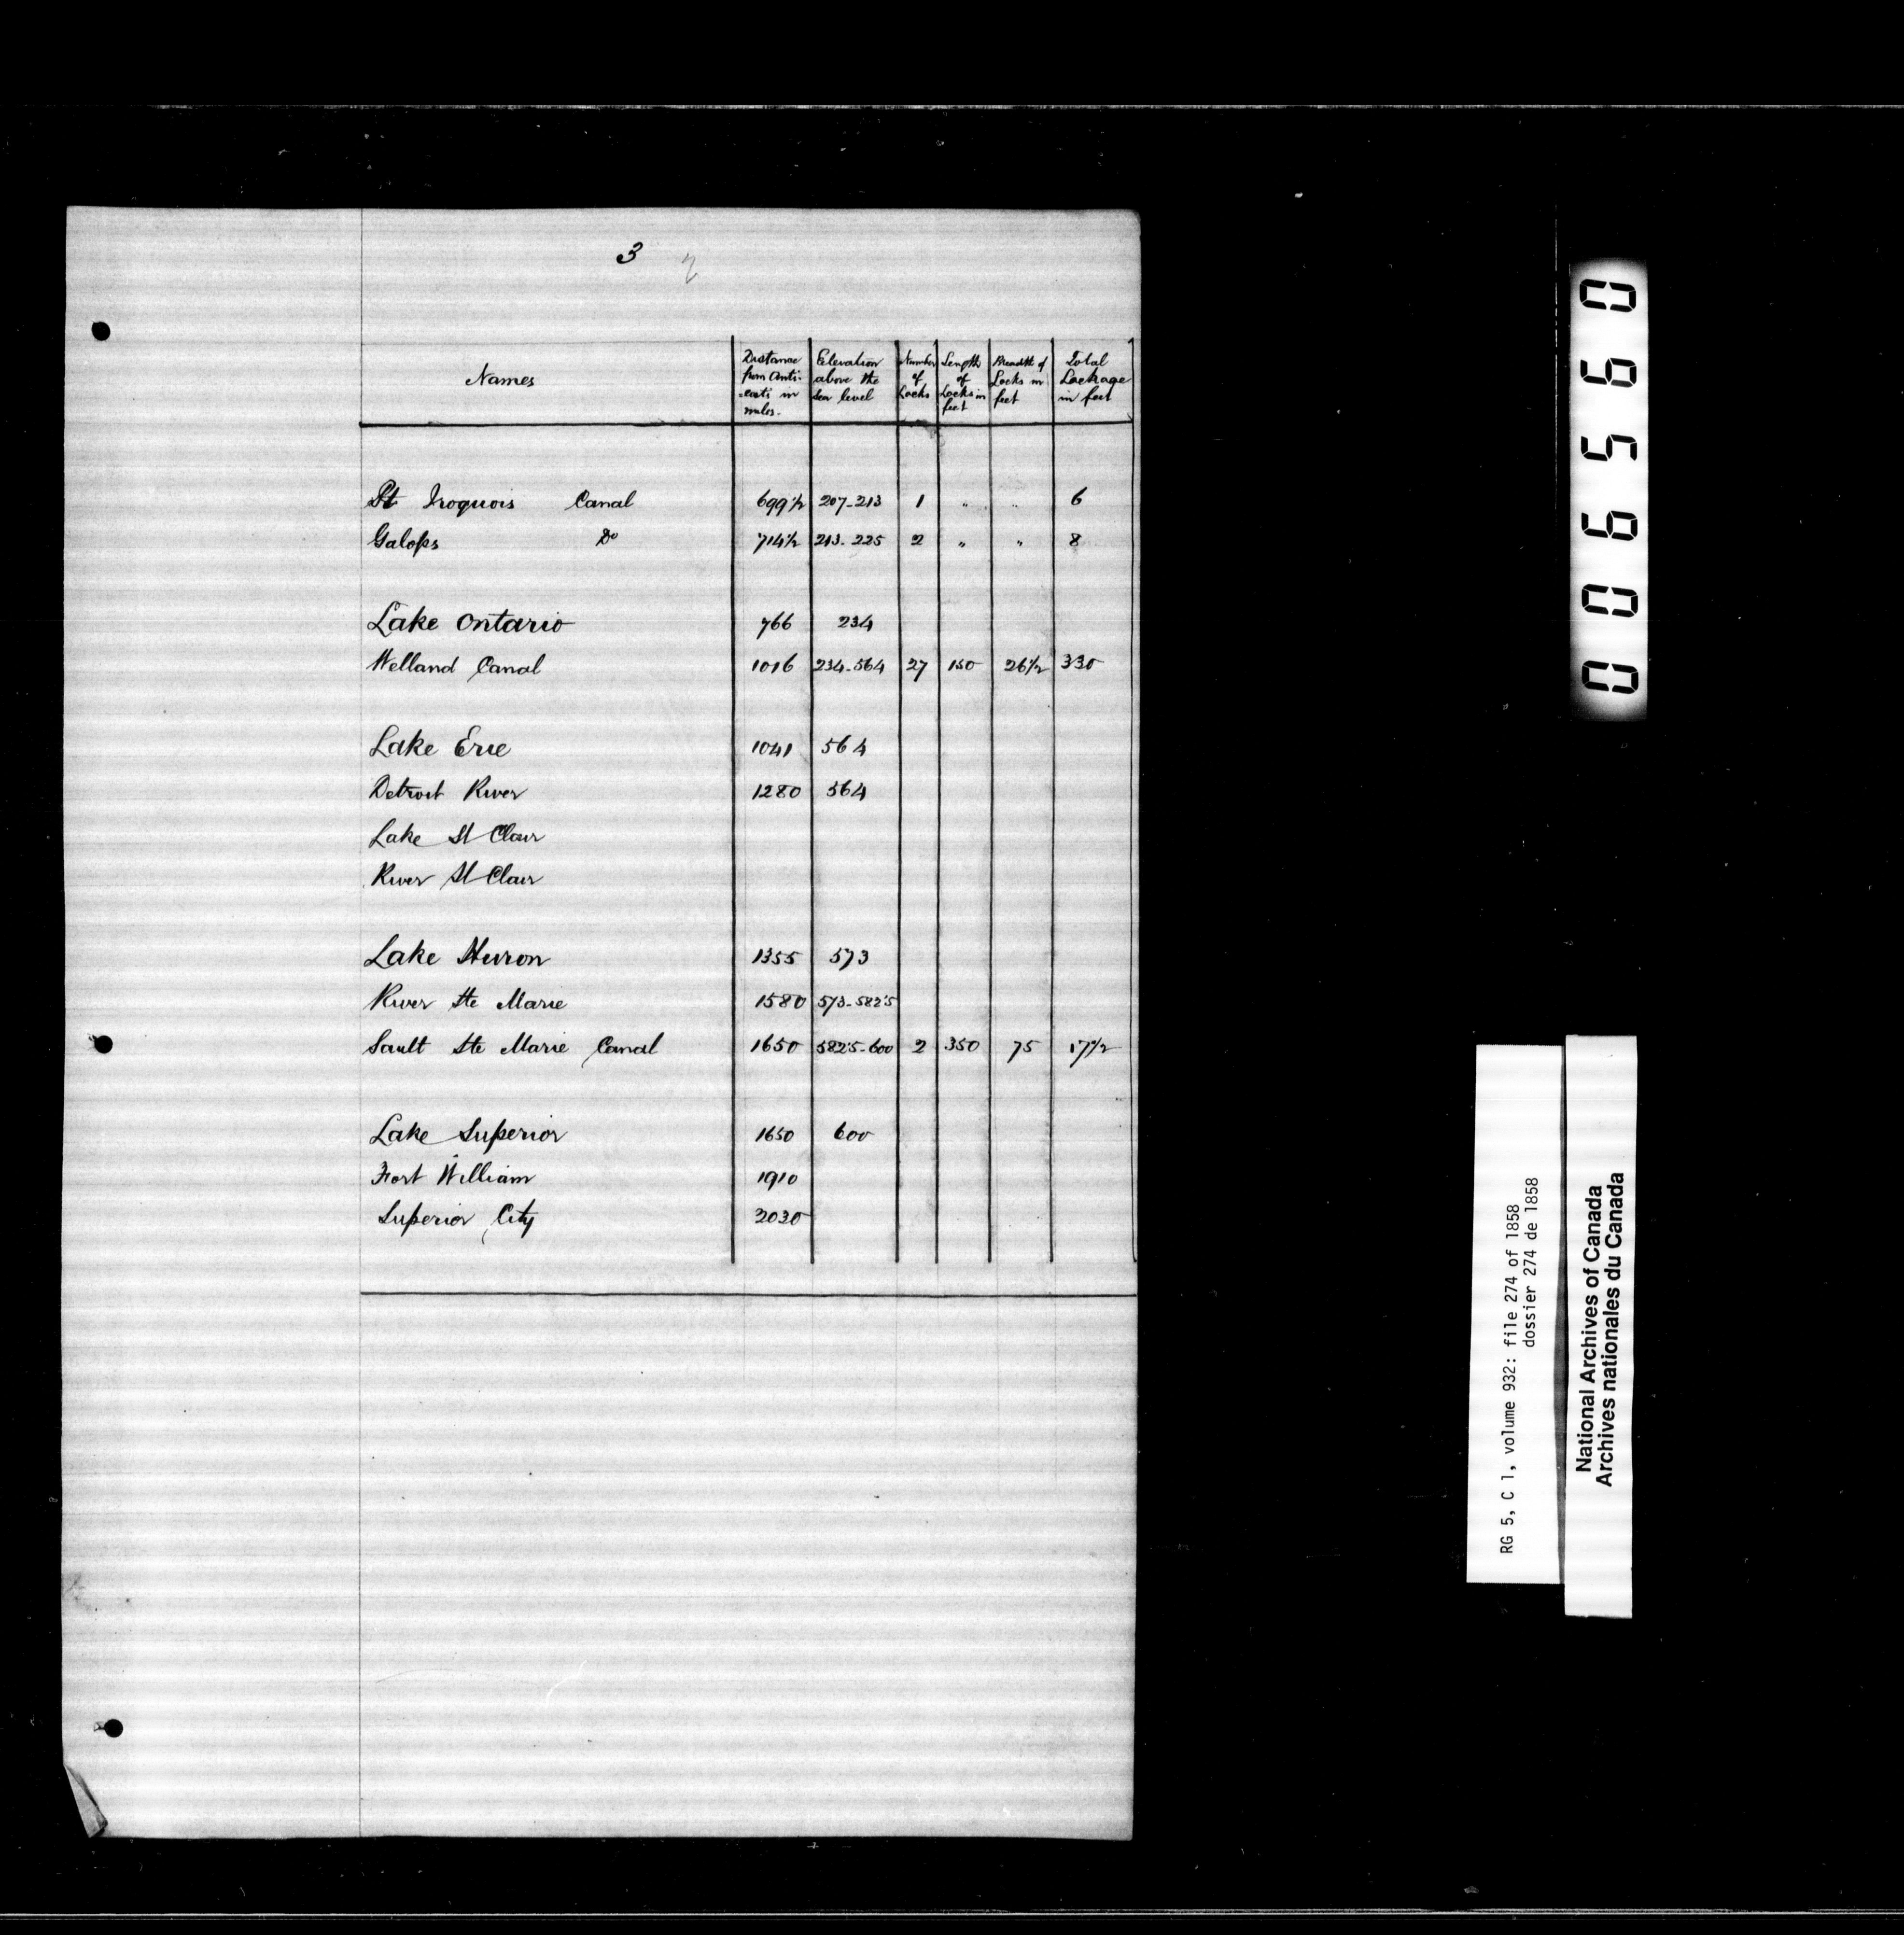 3 2
Names | Distance from Anti-costi in miles. | Elevation above the Sea level | Number of Locks | Length of Locks in feet | Breadth of Locks in feet | Total Lockage in feet
Pt Iroquois Canal 699½ 207-213 1 " " 6
Galops Do 714½ 213-225 2 " " 8
Lake Ontario 766 234
Welland Canal 1016 234-564 27 150 26½ 330
Lake Erie 1041 564
Detroit River 1280 564
Lake St Clair
River St Clair
Lake Huron 1355 573
River Ste Marie 1580 573-582·5
Sault Ste Marie Canal 1650 582·5-600 2 350 75 17½
Lake Superior 1650 600
Fort William 1910
Superior City 2030
006560
RG 5, C 1, volume 932: file 274 of 1858
dossier 274 de 1858
National Archives of Canada
Archives nationales du Canada